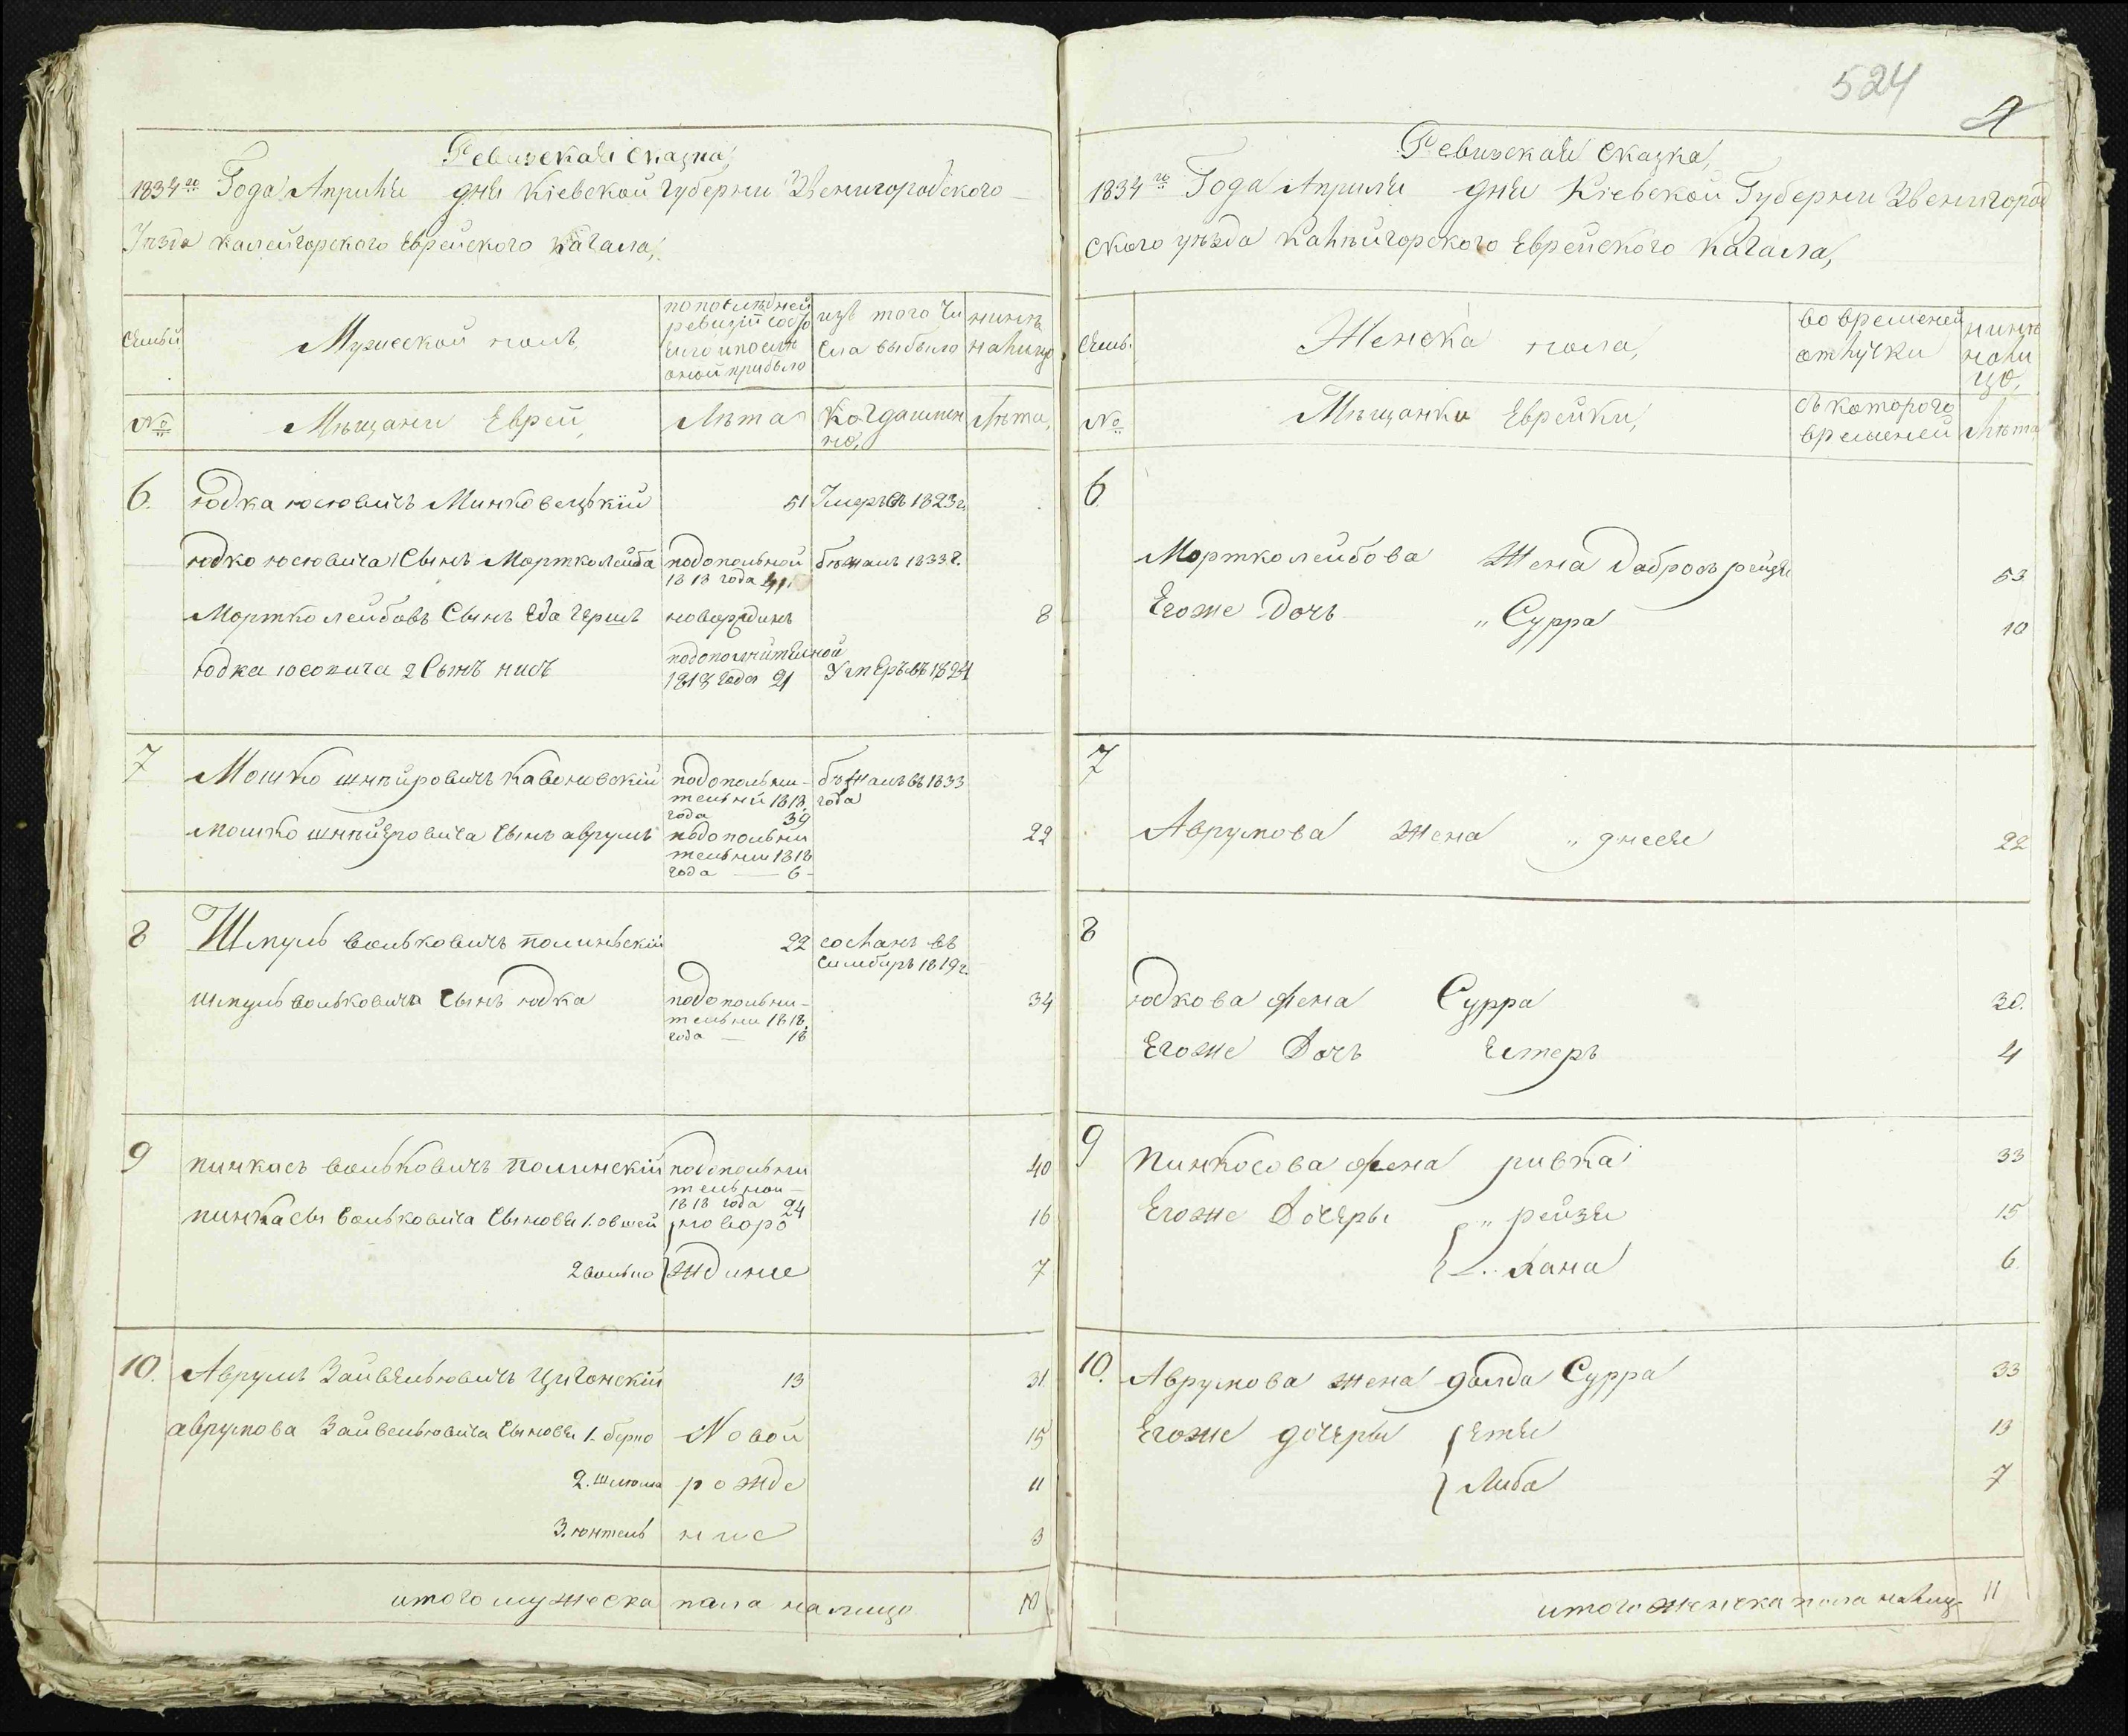 Ревизская сказка,
1834го Года Априля дня Кіевской Губерни Звенигородского
Уезда калейгорского Еврейского Кагала,
Семьи
Мужеской полъ
по последней
ревизій состо
яло и после
оной прибыло
изъ того чи
сла выбыло
нине
налицо
№
Мещани Еврей
Лета
Когда имен
но,
Лета,
6. юдка юсювичъ Минковецькій 51 Умеръ въ 1823г.
юдко юсювича Сынъ Мортколейба подопольной бежалъ 1833г.
1818 года 41.
Мортко лейбовъ Сынъ Еда Гершъ новорждинъ 8
юдка юсовича 2 Сынъ нисъ подополнительной
1818 года 21 Умеръ въ 1824
7 Мошко шпѣйровичъ Кавоновскій подопольни- бежалъ въ 1833
тельний 1818 года
года 39
мошко шпѣйеровича Сынъ аврумъ подопольни 22
тельний 1818
года — 6
8 Шмуль вольковичъ полиньскій 22 сосланъ въ
Симбиръ 1819г.
шмуль вольковича Сынъ юдка подопольни- 34
тельни 1818,
года — 18
9 пинкасъ вольковичъ Полинскій подопольни 40
тельной —
1818 года 24
пинкасы Вольковича Сыновья 1. овшей новоро 16
2 волько ждиние 7
10. Аврумъ Зайвельювичъ Цигонскій 13 31.
аврумова Зайвельювича Сыновья 1. берко Новой 15
2. шлюма рожде 11
3. юнтель ние 3
итого мужеска пала на лицо 10
524
4
Ревизская Сказка,
1834го Года Априля дня Кіевской Губерни Звенигород
ского уезда Калнигорского Еврейского Кагала,
Семь.
Женска пола,
во временой
отлучки
нине
нали
цо,
№
Мещанки Еврейки,
съ которого
временей
Лета
6
Мортколейбова Жена Добрось рейзя 53
Егоже Дочь „ Сурра 10
7
Аврумова Жена „ гнеся 22
8
юдкова жена Сурра 30.
Егоже Дочь Естеръ 4
9 Пинкосова жена ривка 33
Егоже Дочеры „ рейзя 15
„ Хана 6.
10. Аврумова жена голда Сурра 33
Егоже дочеры Етя 13
Либа 7
итого женска пола налиц 11